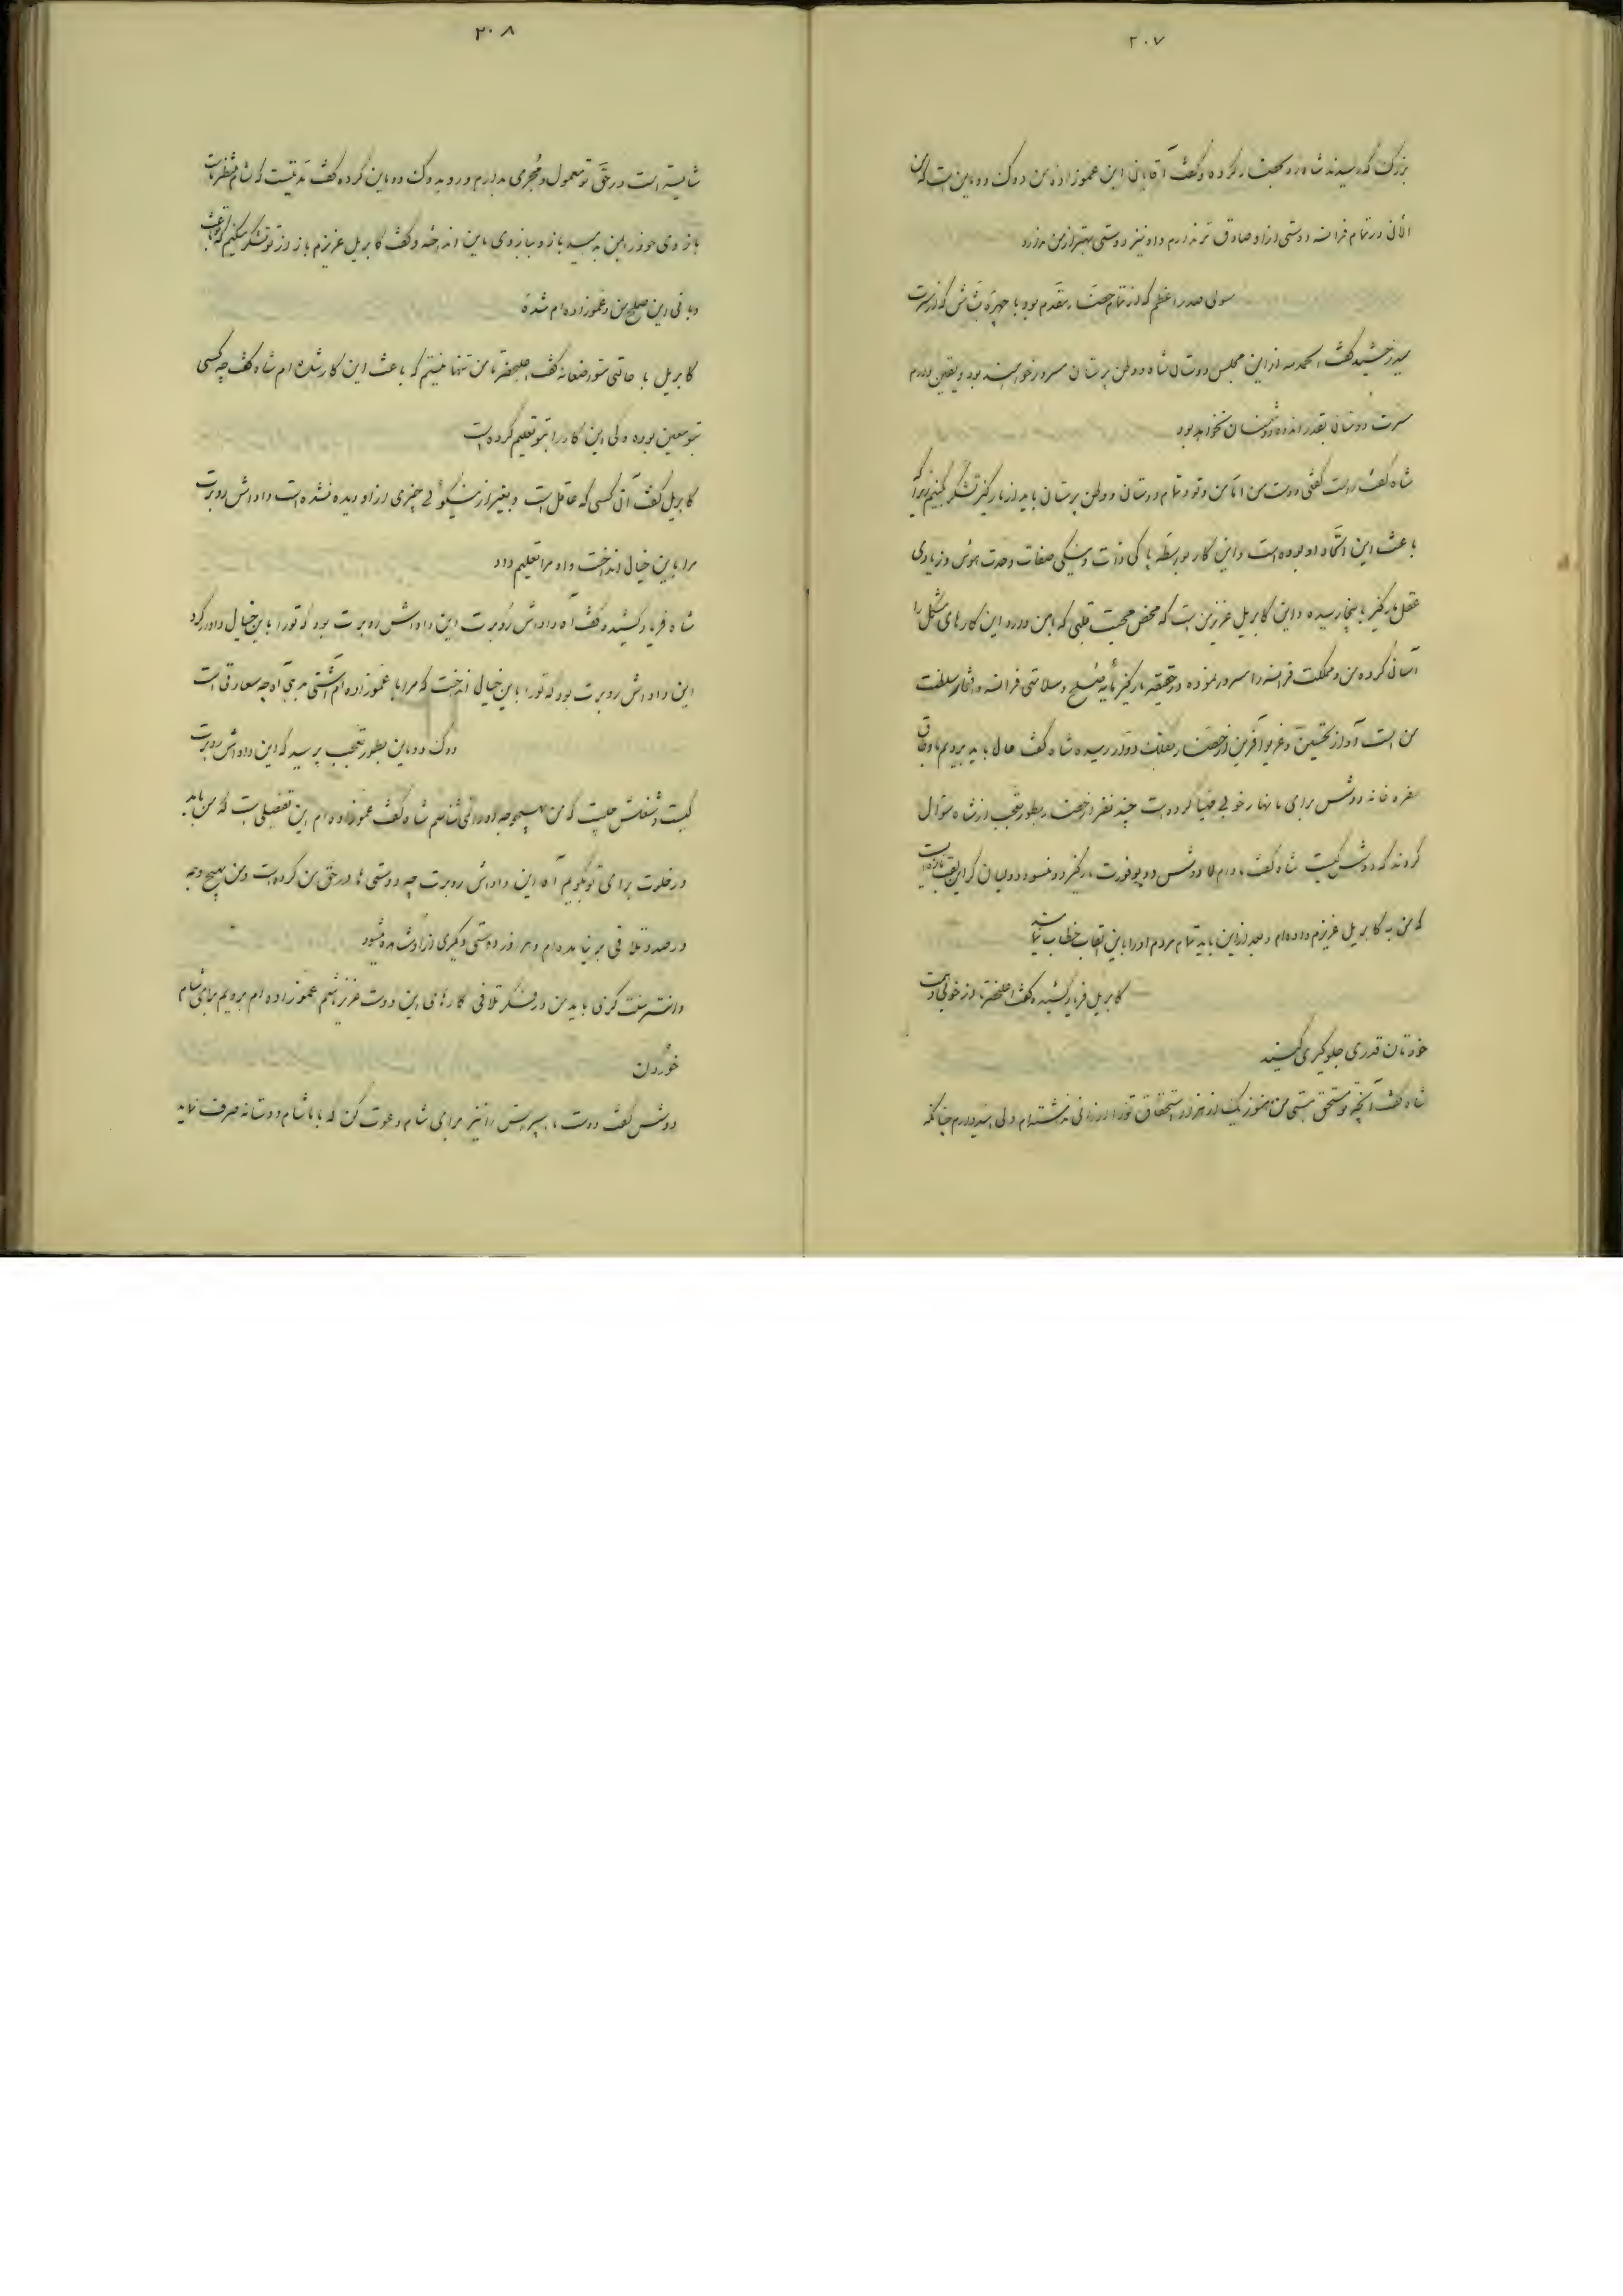 ۲۰۷
بزرگ که رسیدند شاه رو بحضار کرده و گفت آقایان این عموزاده من دوک دوماین است که من
الان در تمام فرانسه دوستی از او صادق تر ندارم و او نیز دوستی بهتر از من ندارد
سولی صدر اعظم که از تمام حضار مقدم بود با چهره بشاش که از مسرت
میدرخشید گفت الحمدلله از این مجلس دوستان شاه و وطن پرستان مسرور خواهند بود و یقین دارم
مسرت دوستان بقدر اندوه دشمنان نخواهد بود
شاه گفت راست گفتی دوست من اما من و تو و تمام دوستان و وطن پرستان باید از مارکیز تشکر کنیم زیرا که
باعث این اتحاد او بوده است و این کار بواسطه پاکی ذات و نیکی صفات و حدت هوش و زیادی
عقل مارکیز بانجام رسیده و این کابریل عزیز من است که محض محبت قلبی که بامن دارد این کارهای مشکل را
آسان کرده من و مملکت فرانسه را مسرور نموده در حقیقت مارکیز مایه صلح و سلامتی فرانسه و افتخار سلطنت
من است آواز تحسین و غریو آفرین از حضار بفلک دوار رسیده شاه گفت حال باید برویم باوطاق
سفره خانه دوشس برای ما نهار خوبی مهیا کرده است چند نفر از حضار بطور تعجب از شاه سؤال
کردند که دوشس کیست شاه گفت مادام لا دوشس دو بوفورت مارکیز دو منسو دو لیان کورا این لقب تازه ایست
که من به کابریل عزیزم داده ام و بعد از این باید تمام مردم او را باین القاب خطاب نمایند
کابریل فریاد کشیده گفت اعلیحضرتا از خوبی ذات
خودتان قدری جلوگیری کنید
شاه گفت آنچه تو مستحق هستی من هنوز یک از هزار استحقاق تو را ارزانی نداشته ام ولی امیدوارم چنانکه
۲۰۸
شایسته است در حق تو معمول و مجری بدارم و رو به دوک دوماین کرده گفت مدتیست که شام منتظر ماست
بازوی خود را بمن بدهید بازو ببازوی ماین انداخته و گفت کابریل عزیزم باز از تو تشکر میکنیم که تو باعث
و بانی این صلح من و عموزاده ام شده
کابریل با حالتی متواضعانه گفت اعلیحضرتا من تنها نیستم که باعث این کار شده ام شاه گفت چه کسی
بتو معین بوده و کی این کار را بتو تعلیم کرده است
کابریل گفت آن کسی که عاقل است و بغیر از نیکوئی چیزی از او دیده نشده است داداش روبرت
مرا باین خیال انداخت و او مرا تعلیم داد
شاه فریاد کشیده و گفت آه داداش روبرت این داداش روبرت بود که تو را باین خیال وادار کرد
این داداش روبرت بود که تو را باین خیال انداخت که مرا با عموزاده ام آشتی دهی آه چه سعادتی است
دوک دوماین بطور تعجب پرسید که این داداش روبرت
کیست و شغلش چیست که من بهیچوجه او را نمی شناسم شاه گفت عموزاده ام این تفصیلی است که من باید
در خلوت برای تو بگویم آه این داداش روبرت چه دوستی ها در حق من کرده است و من بهیچ وجه
در صدد تلافی بر نیامده ام و هر روز دوستی دیگری از او مشاهده میشود
وانتر سنت گری باید من در فکر تلافی کارهای این دوست عزیز باشم عموزاده ام برویم برای شام
خوردن
دوشس گفت دوست ما سپریس را نیز برای شام دعوت کن که با ما شام دوستانه صرف نماید